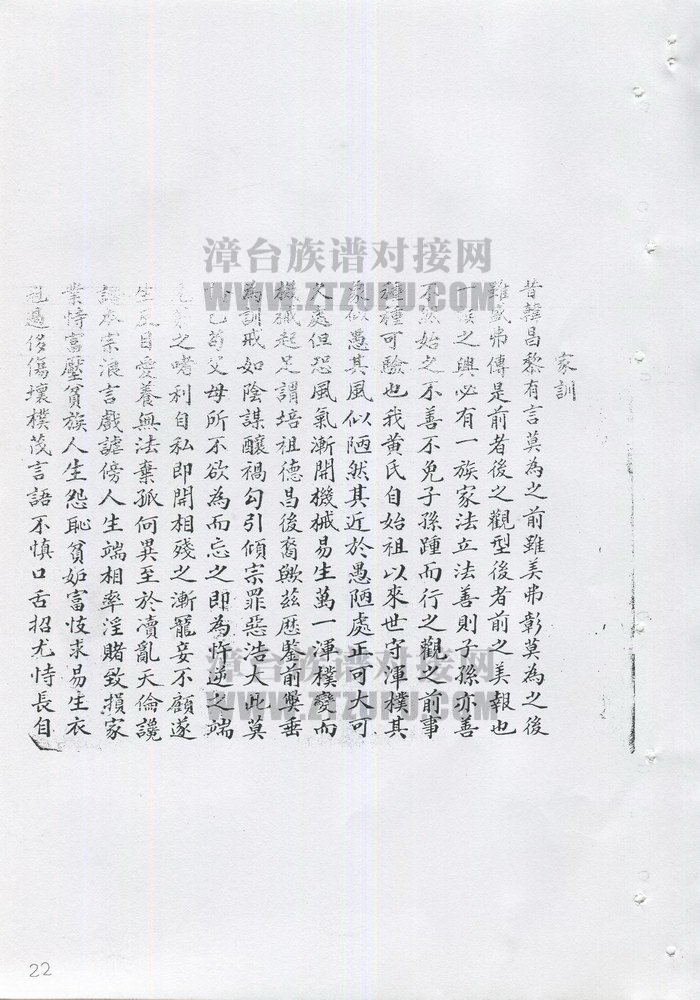 家訓
昔韓昌黎有言莫為之前雖美弗彰莫為之後
雖盛弗傳是前者後之觀型後者前之美報也
一族之興必有一族家法立法善則子孫亦善
不然始之不善不免子孫踵而行之觀之前事
種種可驗也我黄氏自始祖以來世守渾樸其
象似愚其風似陋然其近於愚陋處正可大可
久處但恐風氣漸開機械易生萬一渾樸變而
機械起足謂培祖德昌後裔歟茲歷鑒前輿垂
為訓戒如陰謀釀禍勾引傾宗罪惡浩大此莫
已苟父母所不欲為而忘之即為忤逆之端
之嗜利自私即開相殘之漸寵妾不顧遂
生反目愛養無法棄孤何異至於瀆亂天倫讒
謟本宗浪言戲謔傍人生端相率淫賭致損家
業恃富壓貧族人生怨恥貧妬富忮求易生衣
過侈傷壞樸茂言語不慎口舌招尤恃長自
漳台族谱对接网
WWW.ZTZUPU.COM
漳台族谱对接网
WWW.ZTZUPU.COM
22